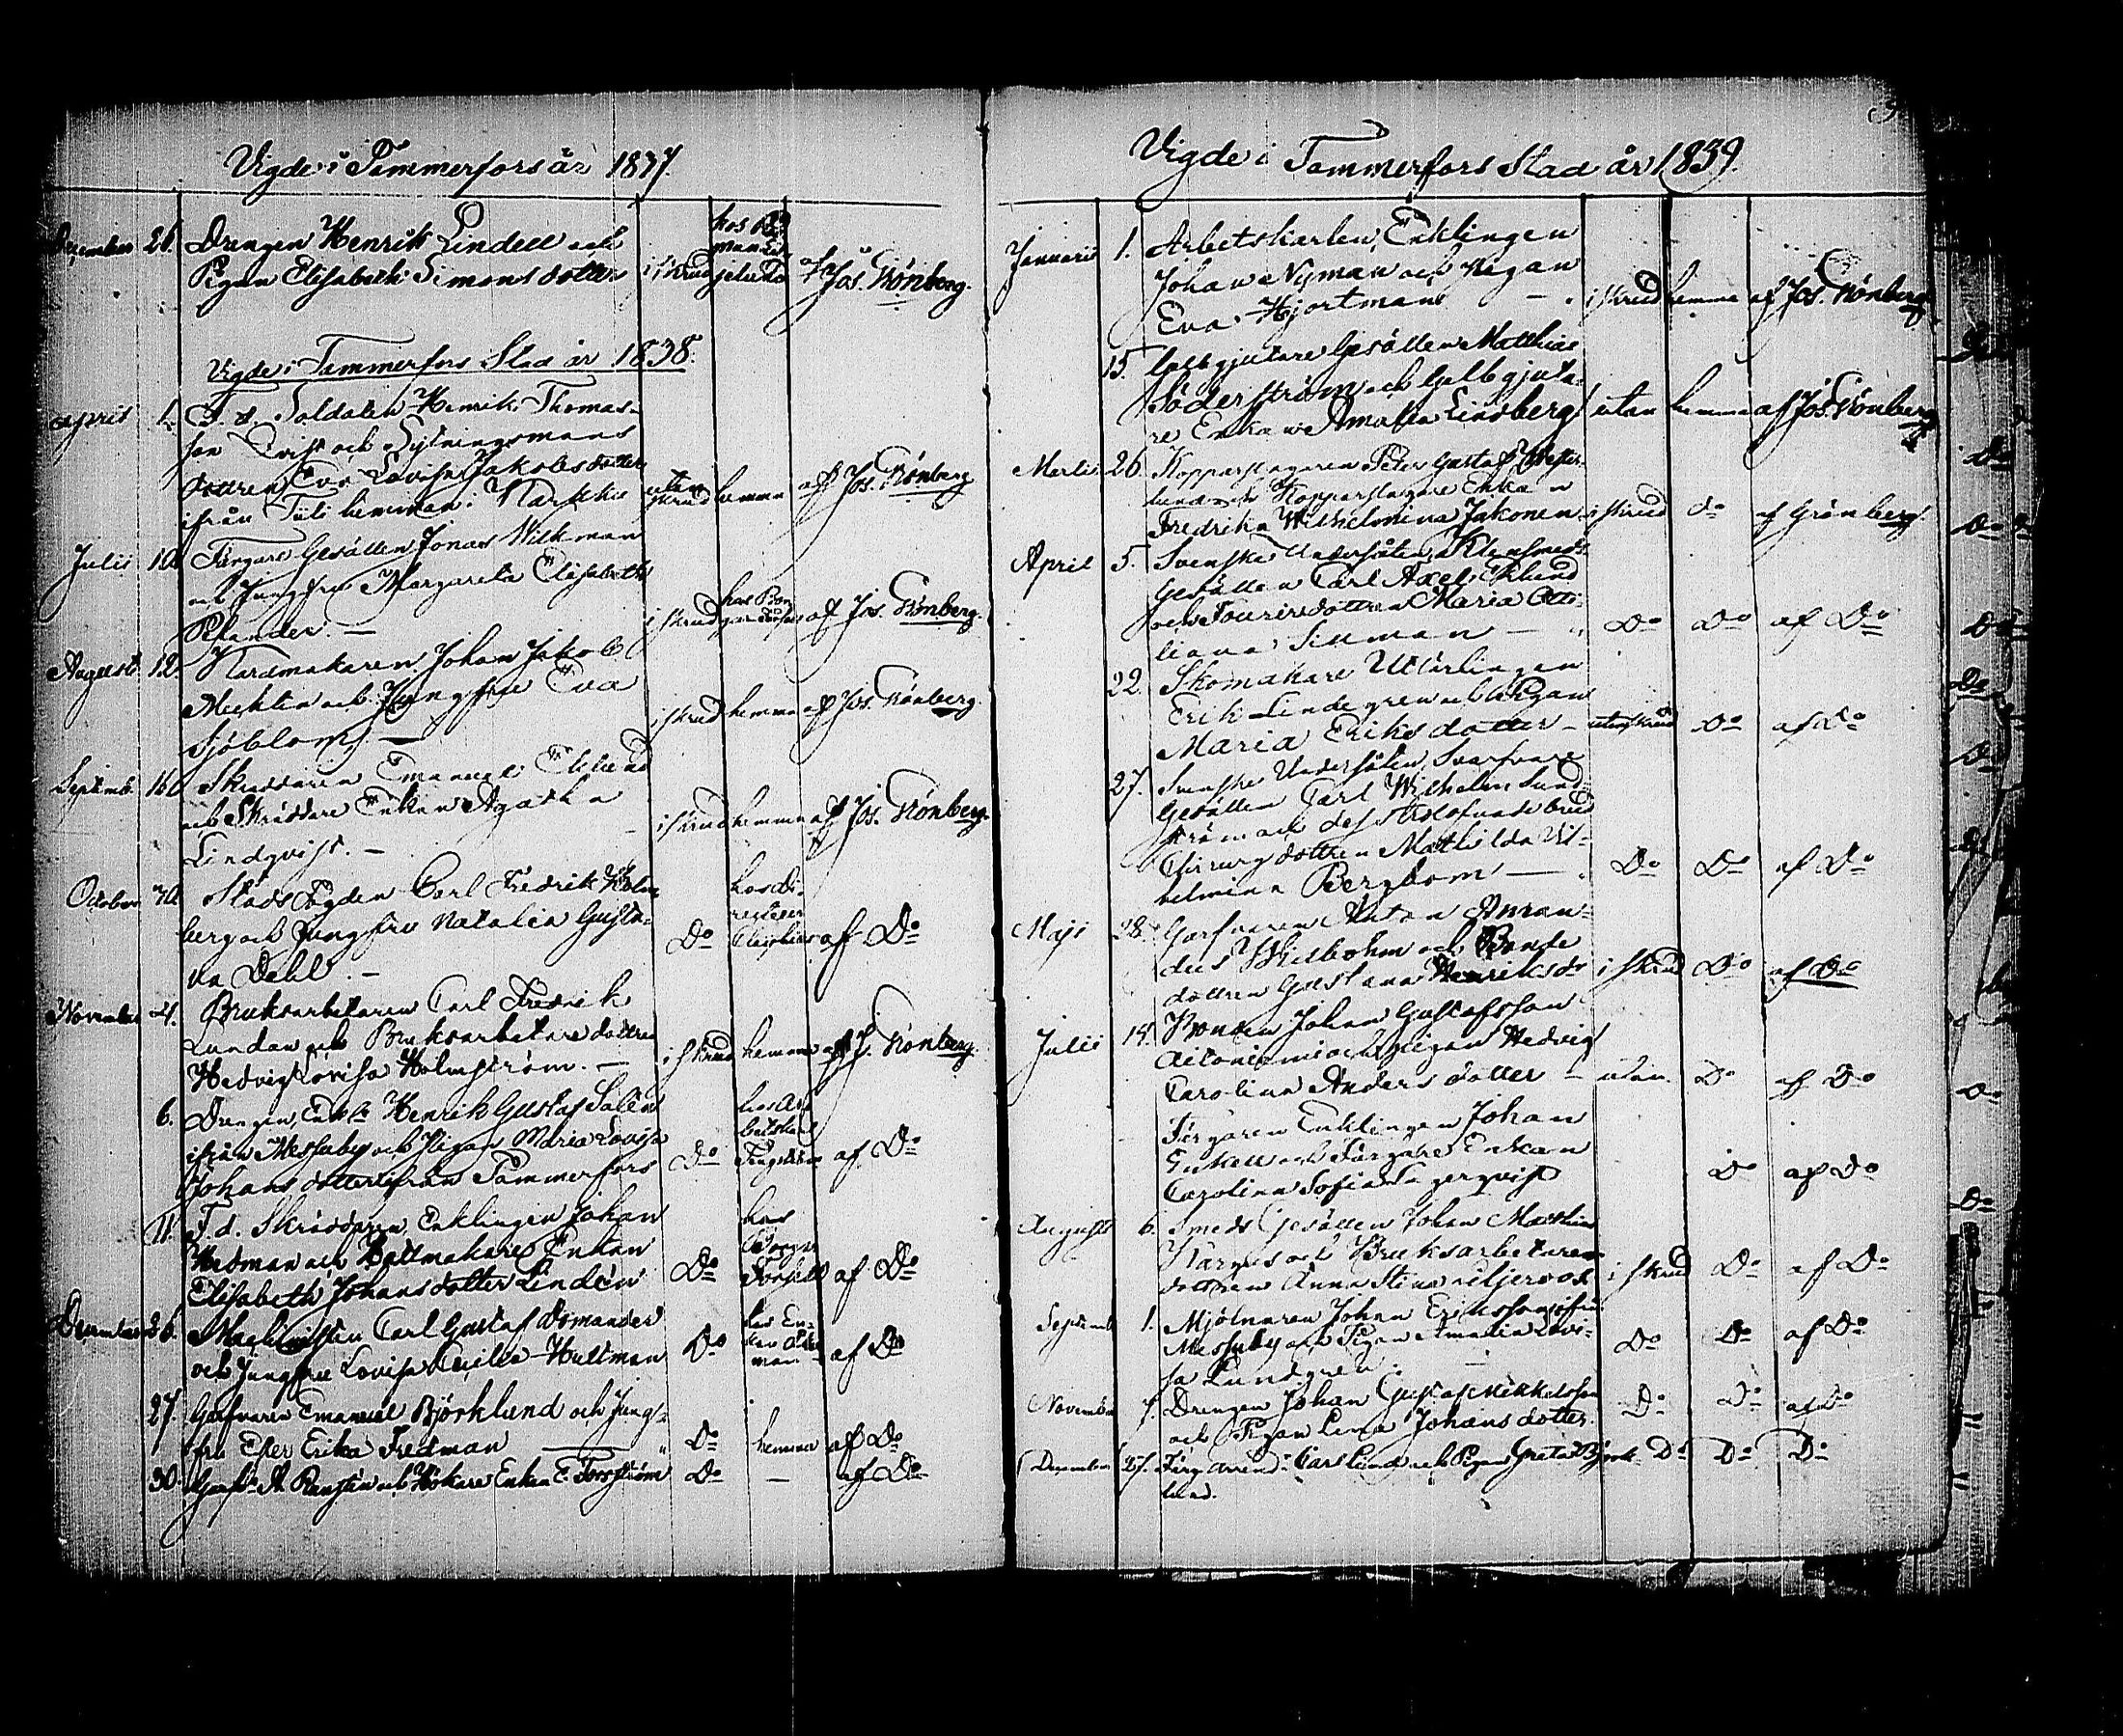 Vigde i Tammerfors år 1837.
December 26. Drengen Henrik Lindell och
Pigan Elisabeth Simonsdotter i skrud af Jos. Grönberg.
Vigde i Tammerfors Stad år 1838.
April 1. F. d. Soldaten Henrik Thomas-
son Qvist och Sytningsmans
dottren Eva Lovisa Jakobsdotter
ifrån hemman i Karkku utan skrud hemma af Jos. Grönberg
Julii 10. Färgare Gesällen Jonas Wikman
och Jungfru Margareta Elisabeth
i skrud af Jos. Grönberg.
Augusti 12. Kardmakaren Johan Jakob
Mechlin och Jungfru Eva
Sjöblom. — i skrud hemma af Jos. Grönberg.
Septemb. 16. Skräddaren Emanuel Eklund
och Skräddare Enkan Agatha
Lindqvist. — i skrud hemma af Jos. Grönberg.
October 30. Stads Fogden Carl Fredrik Holm-
berg och Jungfru Natalia Gusta-
va Dahl. — Do af Do
November 4. Bruksarbetaren Carl Fredrik
Lundan och Bruksarbetare dottren
Hedvig Lovisa Holmström. — i skrud hemma af J. Grönberg.
6. Drengen, Enkl. Henrik Gustaf Salin
ifrån Messuby och Pigan Maria Lovisa
Johansdotter ifrån Tammerfors Do hos Ar-
betskarl af Do
11. F. d. Skräddaren, Enklingen Johan
Hedman och Hattmakare Enkan
Elisabeth Johansdotter Lindén Do hos
af Do
December 26. Carl Gustaf
och Jungfru Lovisa Hultman Do hos En-
kan af Do
27. Garfvaren Emanuel Björklund och Jung-
fru Ester Erika Fredman Do hemma af Do
30. och Hökare Enkan E. Forsström Do — af Do
Vigde i Tammerfors Stad år 1839.
Januarii 1. Arbetskarlen, Enklingen
Johan Nyman och Pigan
Eva Hjortman i skrud hemma af Jos. Grönberg
15. Gelbgjutare Gesällen Matthias
Söderström och Gelbgjuta-
re Enkan Amalia Lindberg utan hemma af Jos. Grönberg
Martii 26. Kopparslagaren Peter Gustaf Wester-
lund och Kopparslagare Enkan
Fredrika Wilhelmina Jakonen i skrud do af Grönberg.
April 5. Svenske Undersåten, Klensmeds
Gesällen Carl Axel Eklund
och Fourirsdottren Maria Otti-
liana Silman — Do Do af Do
22. Skomakare Utlärlingen
Erik Lindegren och Pigan
Maria Eriksdotter — utan skrud Do af Do
27. Svenske Undersåten, Svarfvare
Gesällen Carl Wilhelm Lund-
ström och dess trolofvade brud
Chirurg dottren Mathilda Vil-
helmina Bergbom — Do Do af Do
Maji 28. Garfvaren Anton Aman-
dus och Bonde
dottren Gustava Henriksdr i skrud Do af Do
Julii 14. Bonden Johan Gustafsson
och Pigan Hedvig
Carolina Andersdotter — utan Do af Do
Färgaren Enklingen Johan
Enkell och Färgare Enkan
Carolina Sofia Do af Do
Augusti 6. Smeds Gesällen Johan Matthias
och Bruksarbetare
dottren Anna Stina i skrud Do af Do
Septemb 1. Mjölnaren Johan Eriksson ifrån
Messuby och Pigan Amalia Lovi-
sa Lundgren. Do Do af Do
November 7. Drengen Johan Gustaf Mikkelsson
och Pigan Lena Johansdotter. Do Do af Do
December 27. Carl Lund och Pigan Greta Björk- Do Do Do
lund.